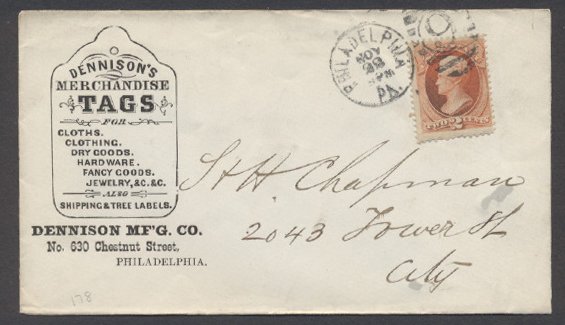 DENNISON'S
MERCHANDISE
TAGS
FOR
CLOTHS.
CLOTHING.
DRY GOODS.
HARDWARE.
FANCY GOODS.
JEWELRY, &C. &C.
ALSO
SHIPPING & TREE LABELS.
DENNISON M'F'G. CO.
No. 630 Chestnut Street,
PHILADELPHIA.
PHILADELPHIA
NOV
PA.
TWO CENTS
2
St H Chapman
2043 Tower St
City
178